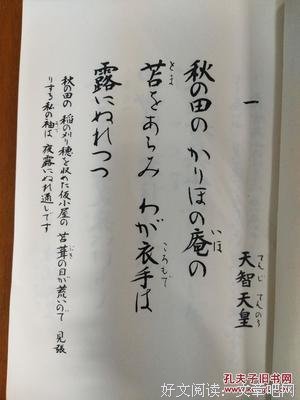 一
天智天皇
てんじ てんのう
秋の田の かりほの庵の
いほ
苫をあらみ わが衣手は
とま ころもで
露にぬれつつ
秋の田の 稲の刈り穂を収めた仮小屋の 苫葺の目が荒いので 見張
りする私の袖は 夜露にぬれ通しです
孔夫子旧书网
好文阅读：文章吧网